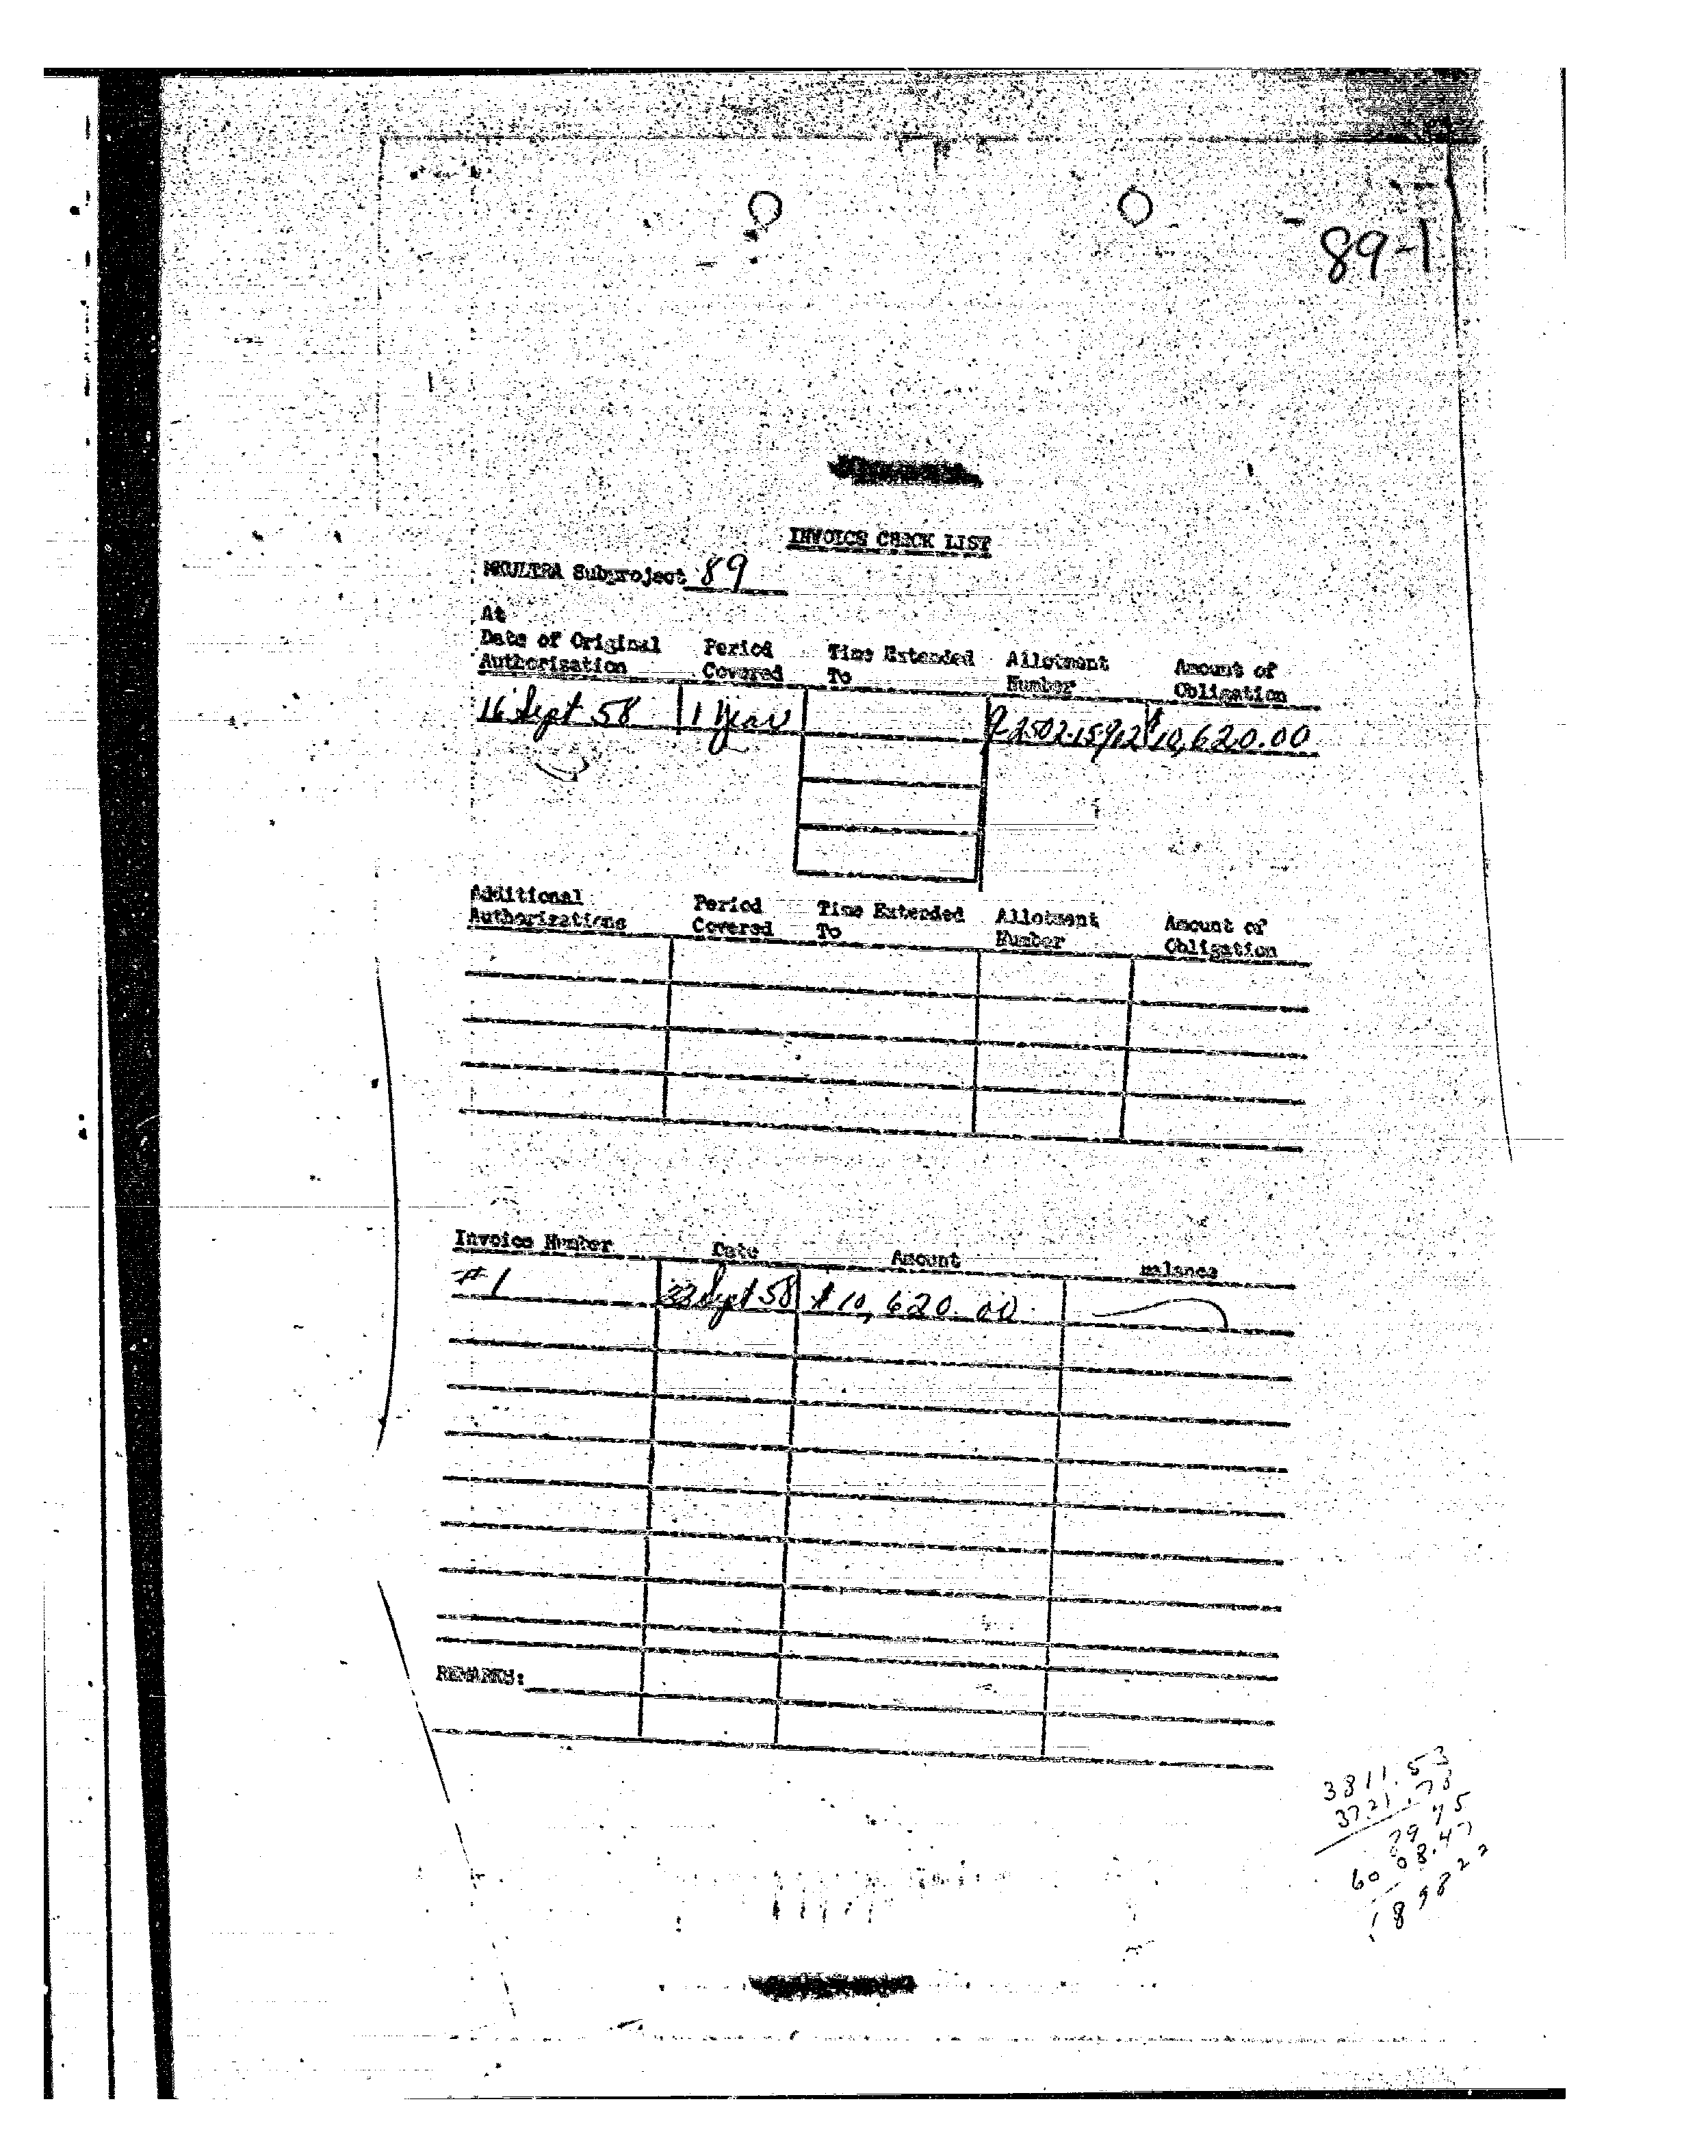 89-1
INVOICE CHECK LIST
MKULTRA Subproject 89
At
Date of Original Authorization Period Covered Time Extended To Allotment Number Amount of Obligation
16 Sept 58 1 Year $10,620.00
Additional Authorizations Period Covered Time Extended To Allotment Number Amount of Obligation
Invoice Number Date Amount Balance
#1 Sept 58 $10,620.00
REMARKS:
3811.53